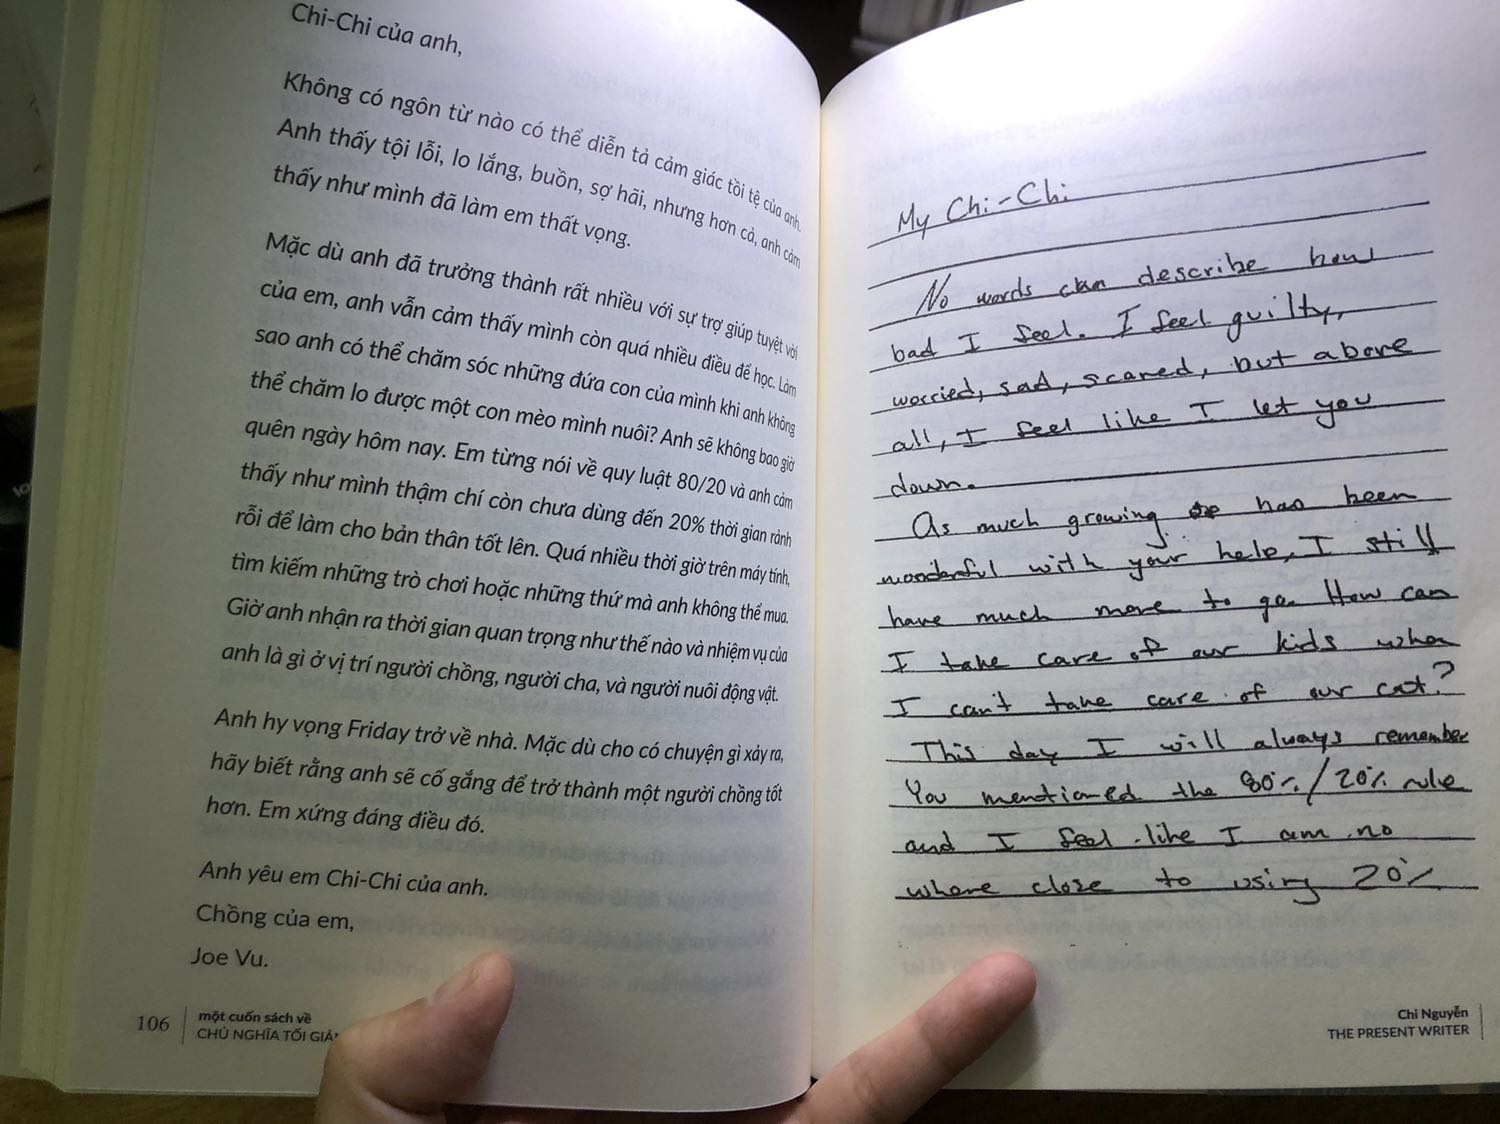 Chi-Chi của anh,
Không có ngôn từ nào có thể diễn tả cảm giác tồi tệ của anh.
Anh thấy tội lỗi, lo lắng, buồn, sợ hãi, nhưng hơn cả, anh cảm
thấy như mình đã làm em thất vọng.
Mặc dù anh đã trưởng thành rất nhiều với sự trợ giúp tuyệt vời
của em, anh vẫn cảm thấy mình còn quá nhiều điều để học. Làm
sao anh có thể chăm sóc những đứa con của mình khi anh không
thể chăm lo được một con mèo mình nuôi? Anh sẽ không bao giờ
quên ngày hôm nay. Em từng nói về quy luật 80/20 và anh cảm
thấy như mình thậm chí còn chưa dùng đến 20% thời gian rảnh
rỗi để làm cho bản thân tốt lên. Quá nhiều thời giờ trên máy tính,
tìm kiếm những trò chơi hoặc những thứ mà anh không thể mua.
Giờ anh nhận ra thời gian quan trọng như thế nào và nhiệm vụ của
anh là gì ở vị trí người chồng, người cha, và người nuôi động vật.
Anh hy vọng Friday trở về nhà. Mặc dù cho có chuyện gì xảy ra,
hãy biết rằng anh sẽ cố gắng để trở thành một người chồng tốt
hơn. Em xứng đáng điều đó.
Anh yêu em Chi-Chi của anh.
Chồng của em,
Joe Vu.
106
một cuốn sách về
CHỦ NGHĨA TỐI GIẢN
My Chi-Chi
No words can describe how
bad I feel. I feel guilty,
worried, sad, scared, but above
all, I feel like I let you
down.
As much growing has been
wonderful with your help, I still
have much more to go. How can
I take care of our kids when
I can't take care of our cat?
This day I will always remember
You mentioned the 80%/20% rule
and I feel like I am no
where close to using 20%
Chi Nguyễn
THE PRESENT WRITER